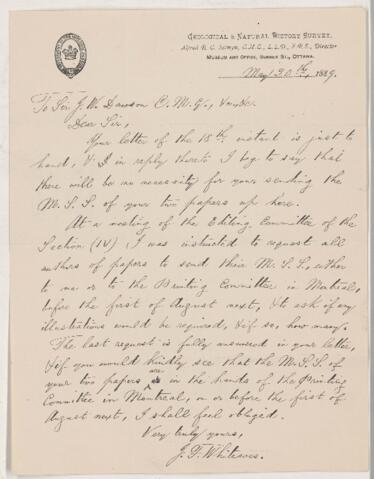 GEOLOGICAL & NATURAL HISTORY SURVEY.
Alfred R. C. Selwyn, C.M.G., L.L.D., F.R.S., Director
MUSEUM AND OFFICE, SUSSEX ST., OTTAWA.
May 20th, 1889.
To Sir J. W. Dawson C. M. G.,
Dear Sir,
Your letter of the 18th instant is just to
hand, & I in reply thereto I beg to say that
there will be no necessity for your sending the
M.S.S. of your two papers up here.
At a meeting of the Editing Committee of the
Section (IV) I was instructed to request all
authors of papers to send their M.S.S. either
to me or to the Printing Committee in Montreal,
before the first of August next, & to ask if any
illustrations would be required, & if so, how many.
The last request is fully answered in your letter,
& if you would kindly see that the M.S.S. of
your two papers are in the hands of the Printing
Committee in Montreal, on or before the first of
August next, I shall feel obliged.
Very truly yours,
J. F. Whiteaves.